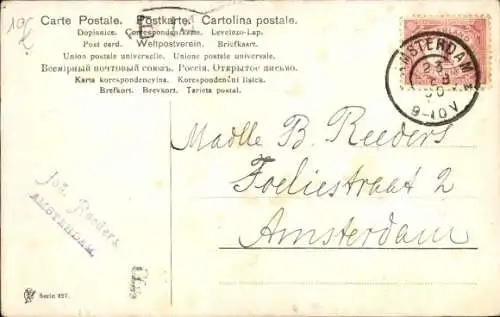 Carte Postale. Postkarte. Cartolina postale.
Dopisnice. Correspondenzkarte. Levelező-Lap.
Post card. Weltpostverein. Briefkaart.
Union postale universelle. Unione postale universale.
Всемірный почтовый союзъ. Россія. Открытое письмо.
Karta korespondencyjna. Korespondenční lístek.
Brefkort. Brevkort. Tarjeta postal.
AMSTERDAM
9-10V
Madlle B. Reeders
Foeliestraat 2
Amsterdam
Joh. Reeders
AMSTERDAM.
Serie 197.